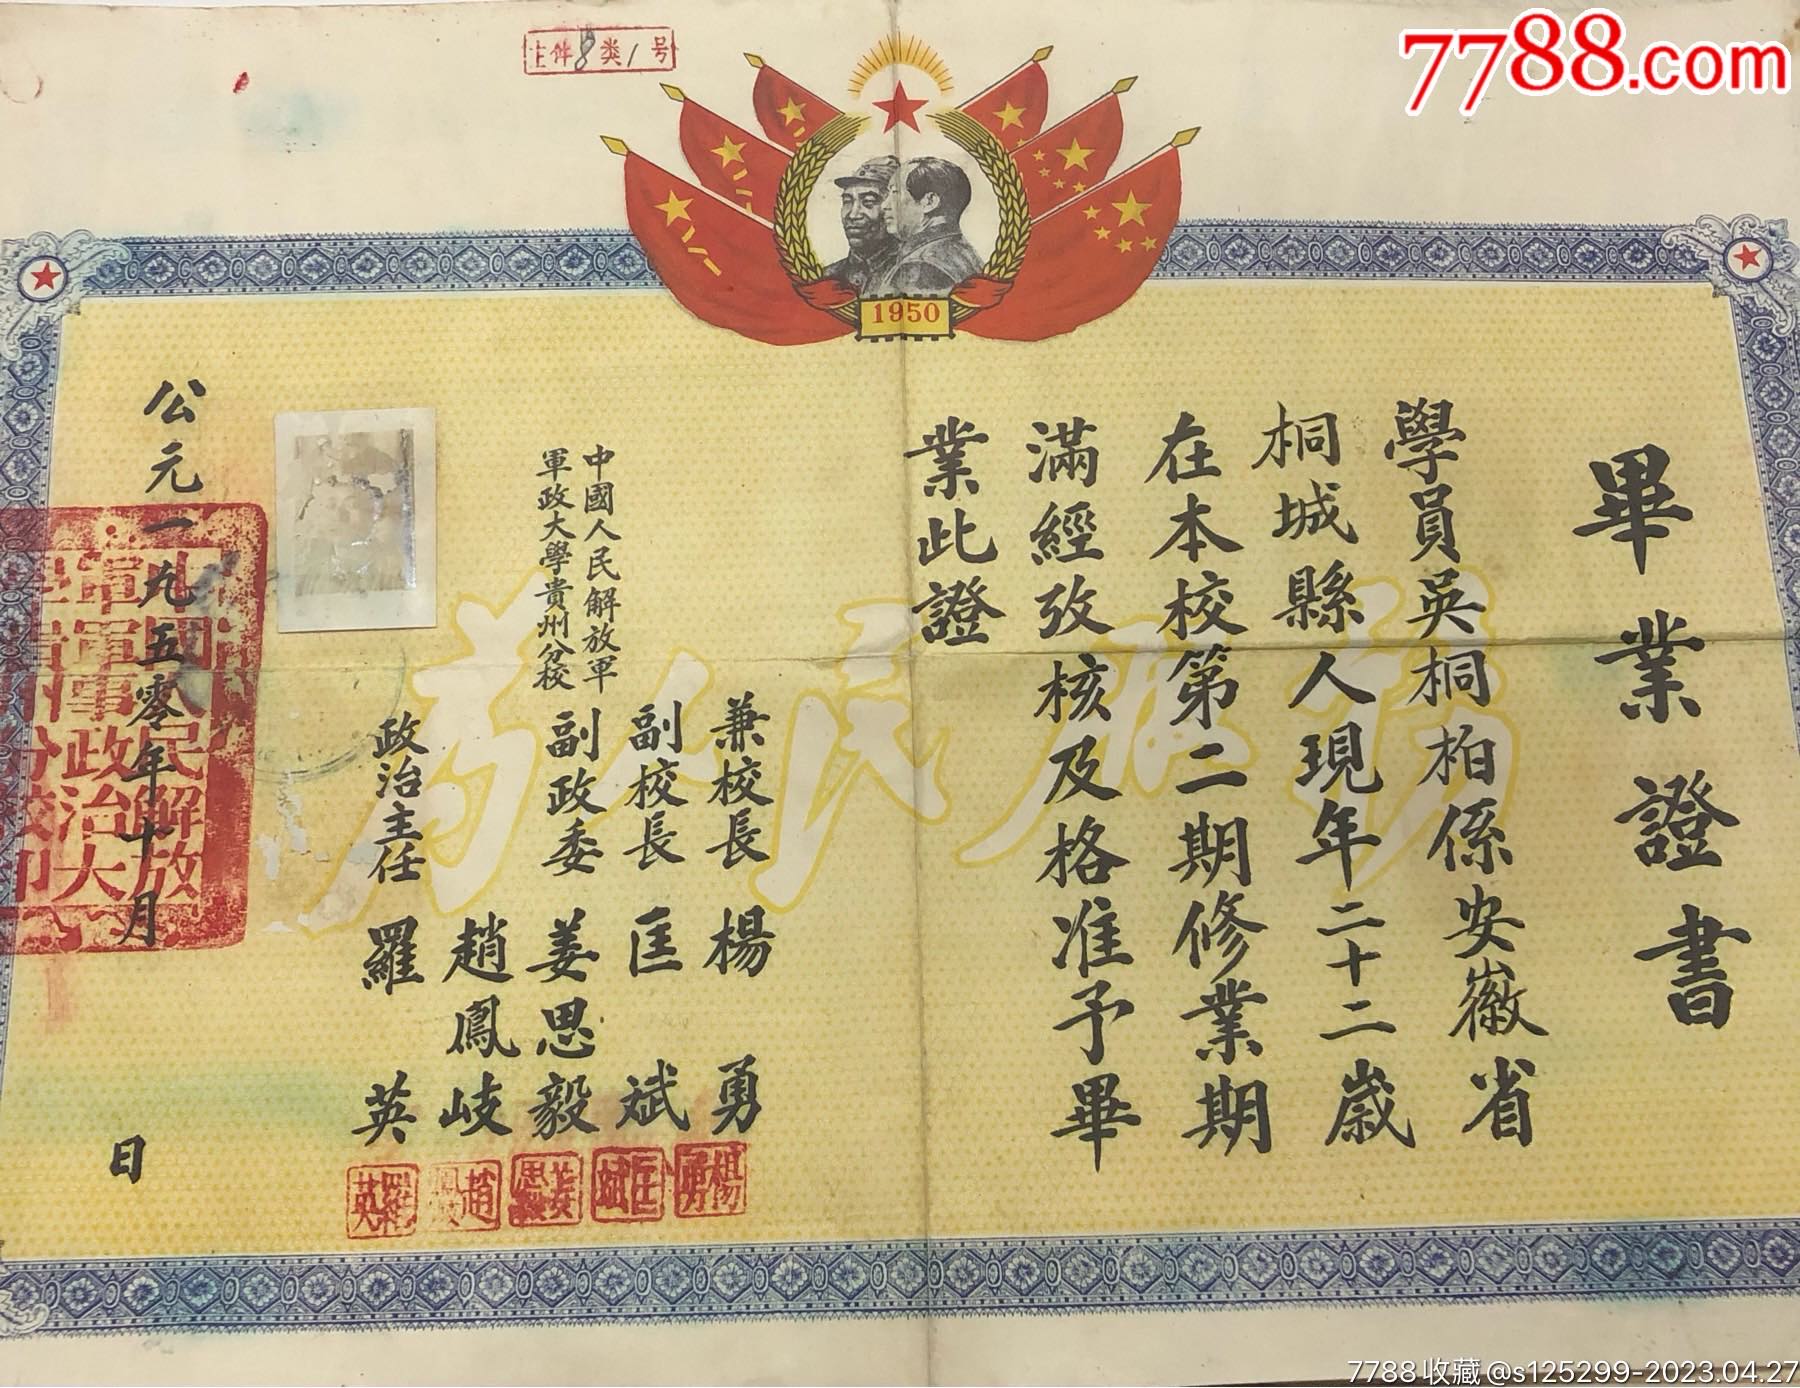 7788.com
上件8类1号
1950
畢業證書
學員吳桐柏係安徽省
桐城縣人現年二十二歲
在本校第二期修業期
滿經攷核及格准予畢
業此證
為人民服務
中國人民解放軍
軍政大學貴州分校
兼校長 楊勇
副校長 匡斌
副政委 姜思毅
趙鳳岐
政治主任 羅英
楊勇
匡斌
姜思毅
趙鳳岐
羅英
公元一九五零年十月 日
7788收藏@s125299-2023.04.27